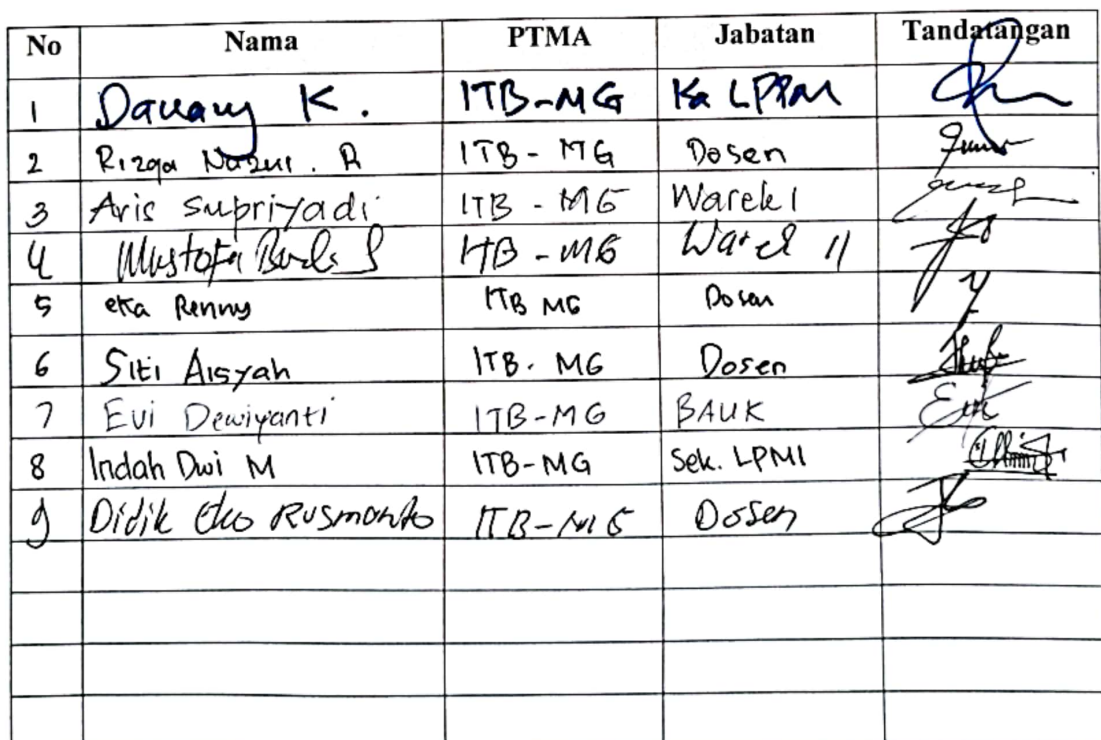 No Nama PTMA Jabatan Tandatangan
1 Danang K. ITB-MG Ka LPPM
2 Rizqa Nuzul. R ITB - MG Dosen
3 Aris Supriyadi ITB - MG Warek I
4 Mustofa Budi S ITB - MG Warek II
5 eka Renny ITB MG Dosen
6 Siti Aisyah ITB. MG Dosen
7 Evi Dewiyanti ITB-MG BAUK
8 Indah Dwi M ITB-MG Sek. LPMI
9 Didik Eko Rusmanto ITB-MG Dosen